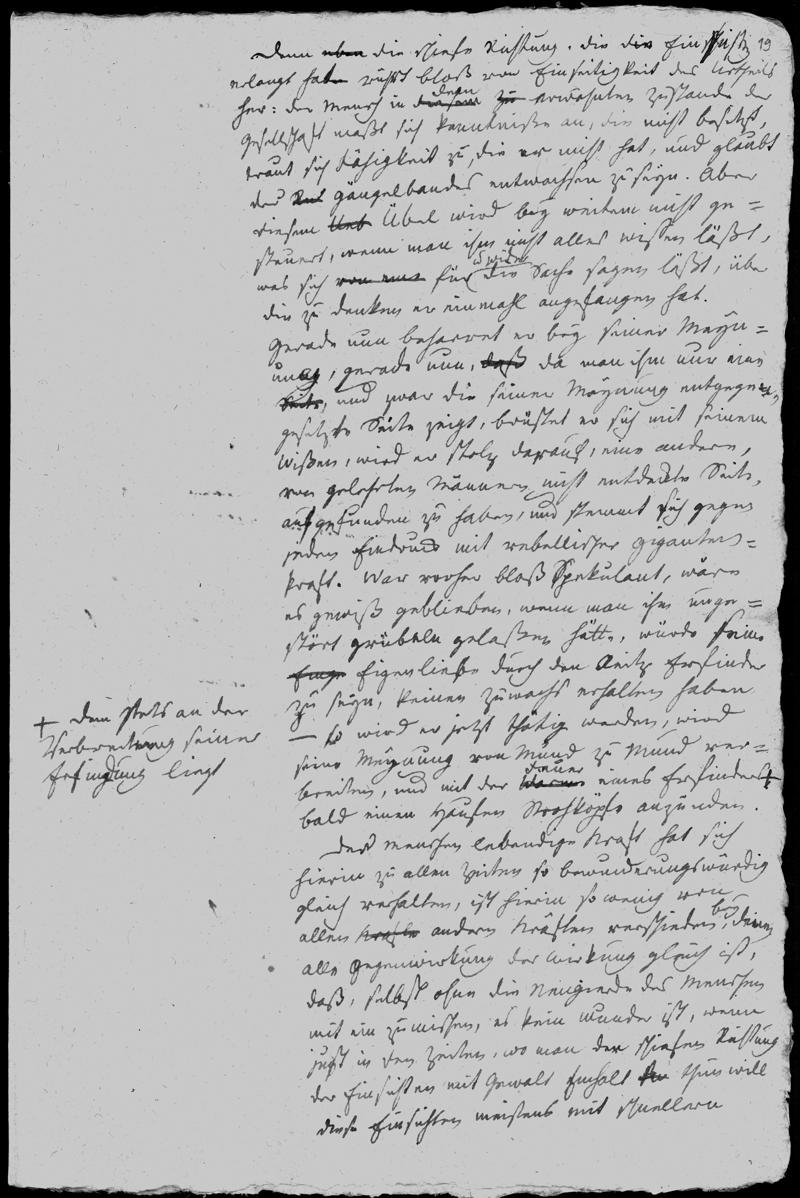 19
Denn eben die schiefe Richtung, die die Einsicht
erlangt hat rührt bloß von Einseitigkeit des Urtheils
her: der Mensch in diesem dem zu erwähnten Zustande der
Gesellschaft maßt sich Kenntniße an, die er nicht besitzt,
traut sich Fähigkeit zu, die er nicht hat, und glaubt
des Gängelbandes entwachsen zu seyn. Aber
diesem Ueb Übel wird bey weitem nicht ge=
steuert, wenn man ihn nicht alles wissen läßt,
was sich von einer für u wider die Sache sagen läßt, über
die zu denken er einmahl angefangen hat.
Gerade nun beharret er bey seiner Meyn=
ung, gerade nun, daß da man ihm nur eine
Seite, und zwar die seiner Meynung entgegen
gesetzte Seite zeigt, brüstet er sich mit seinem
Wißen, wird er stolz darauf, eine andere,
von gelehrten Männern nicht entdeckte Seite,
aufgefunden zu haben, und stemmt sich gegen
jeden Eindruck mit rebellischer Giganten=
kraft. War vorher bloß Spekulant, wäre
es gewiß geblieben, wenn man ihn unge=
stört grübeln gelaßen hätte, würde seine
Eige Eigenliebe durch den Reitz Erfinder
zu seyn, keinen Zuwachs erhalten haben
— so wird er jetzt thätig werden, wird
seine Meynung von Mund zu Mund ver=
breiten, und mit der Wärme Feuer eines Erfinders +
bald einen Haufen Strohköpfe anzünden.
+ dem stets an der
Verbreitung seiner
Erfindung liegt
Des Menschen lebendige Kraft hat sich
hierin zu allen Zeiten so bewunderungswürdig
gleich verhalten, ist hierin so wenig von
allen Kräfte andern Kräften verschieden, bey denen
alle Gegenwirkung der Wirkung gleich ist,
daß, selbst ohne die Neugierde des Menschen
mit ein zumischen, es kein Wunder ist, wenn
just in den Zeiten, wo man der schiefen Richtung
der Einsichten mit Gewalt Einhalt thun will
diese Einsichten meistens mit schnellern